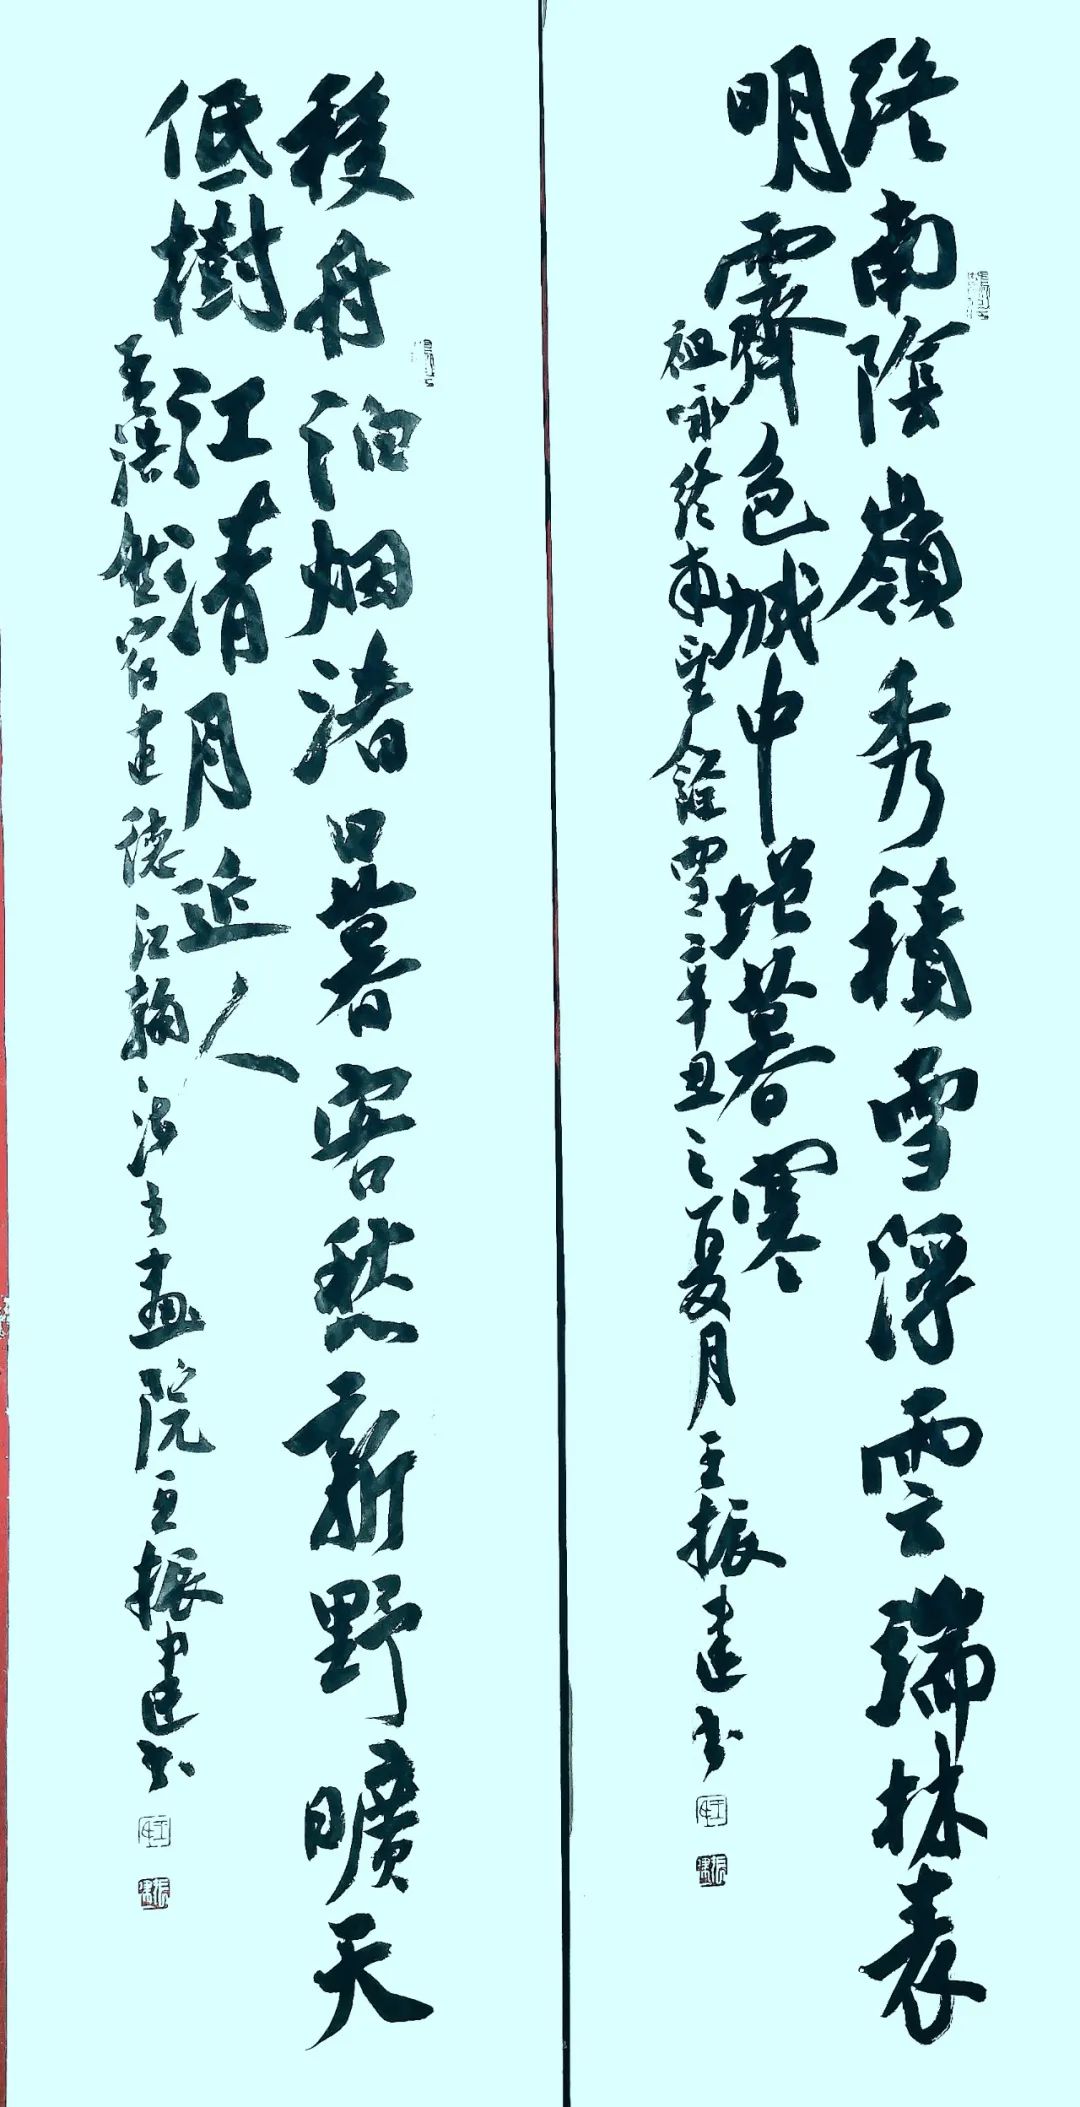 終南陰嶺秀積雪浮雲端林表
明霽色城中增暮寒
祖咏终南望餘雪辛丑之夏月王振建书
移舟泊烟渚日暮客愁新野曠天
低樹江清月近人
孟浩然宿建德江翰海书畫院王振建书